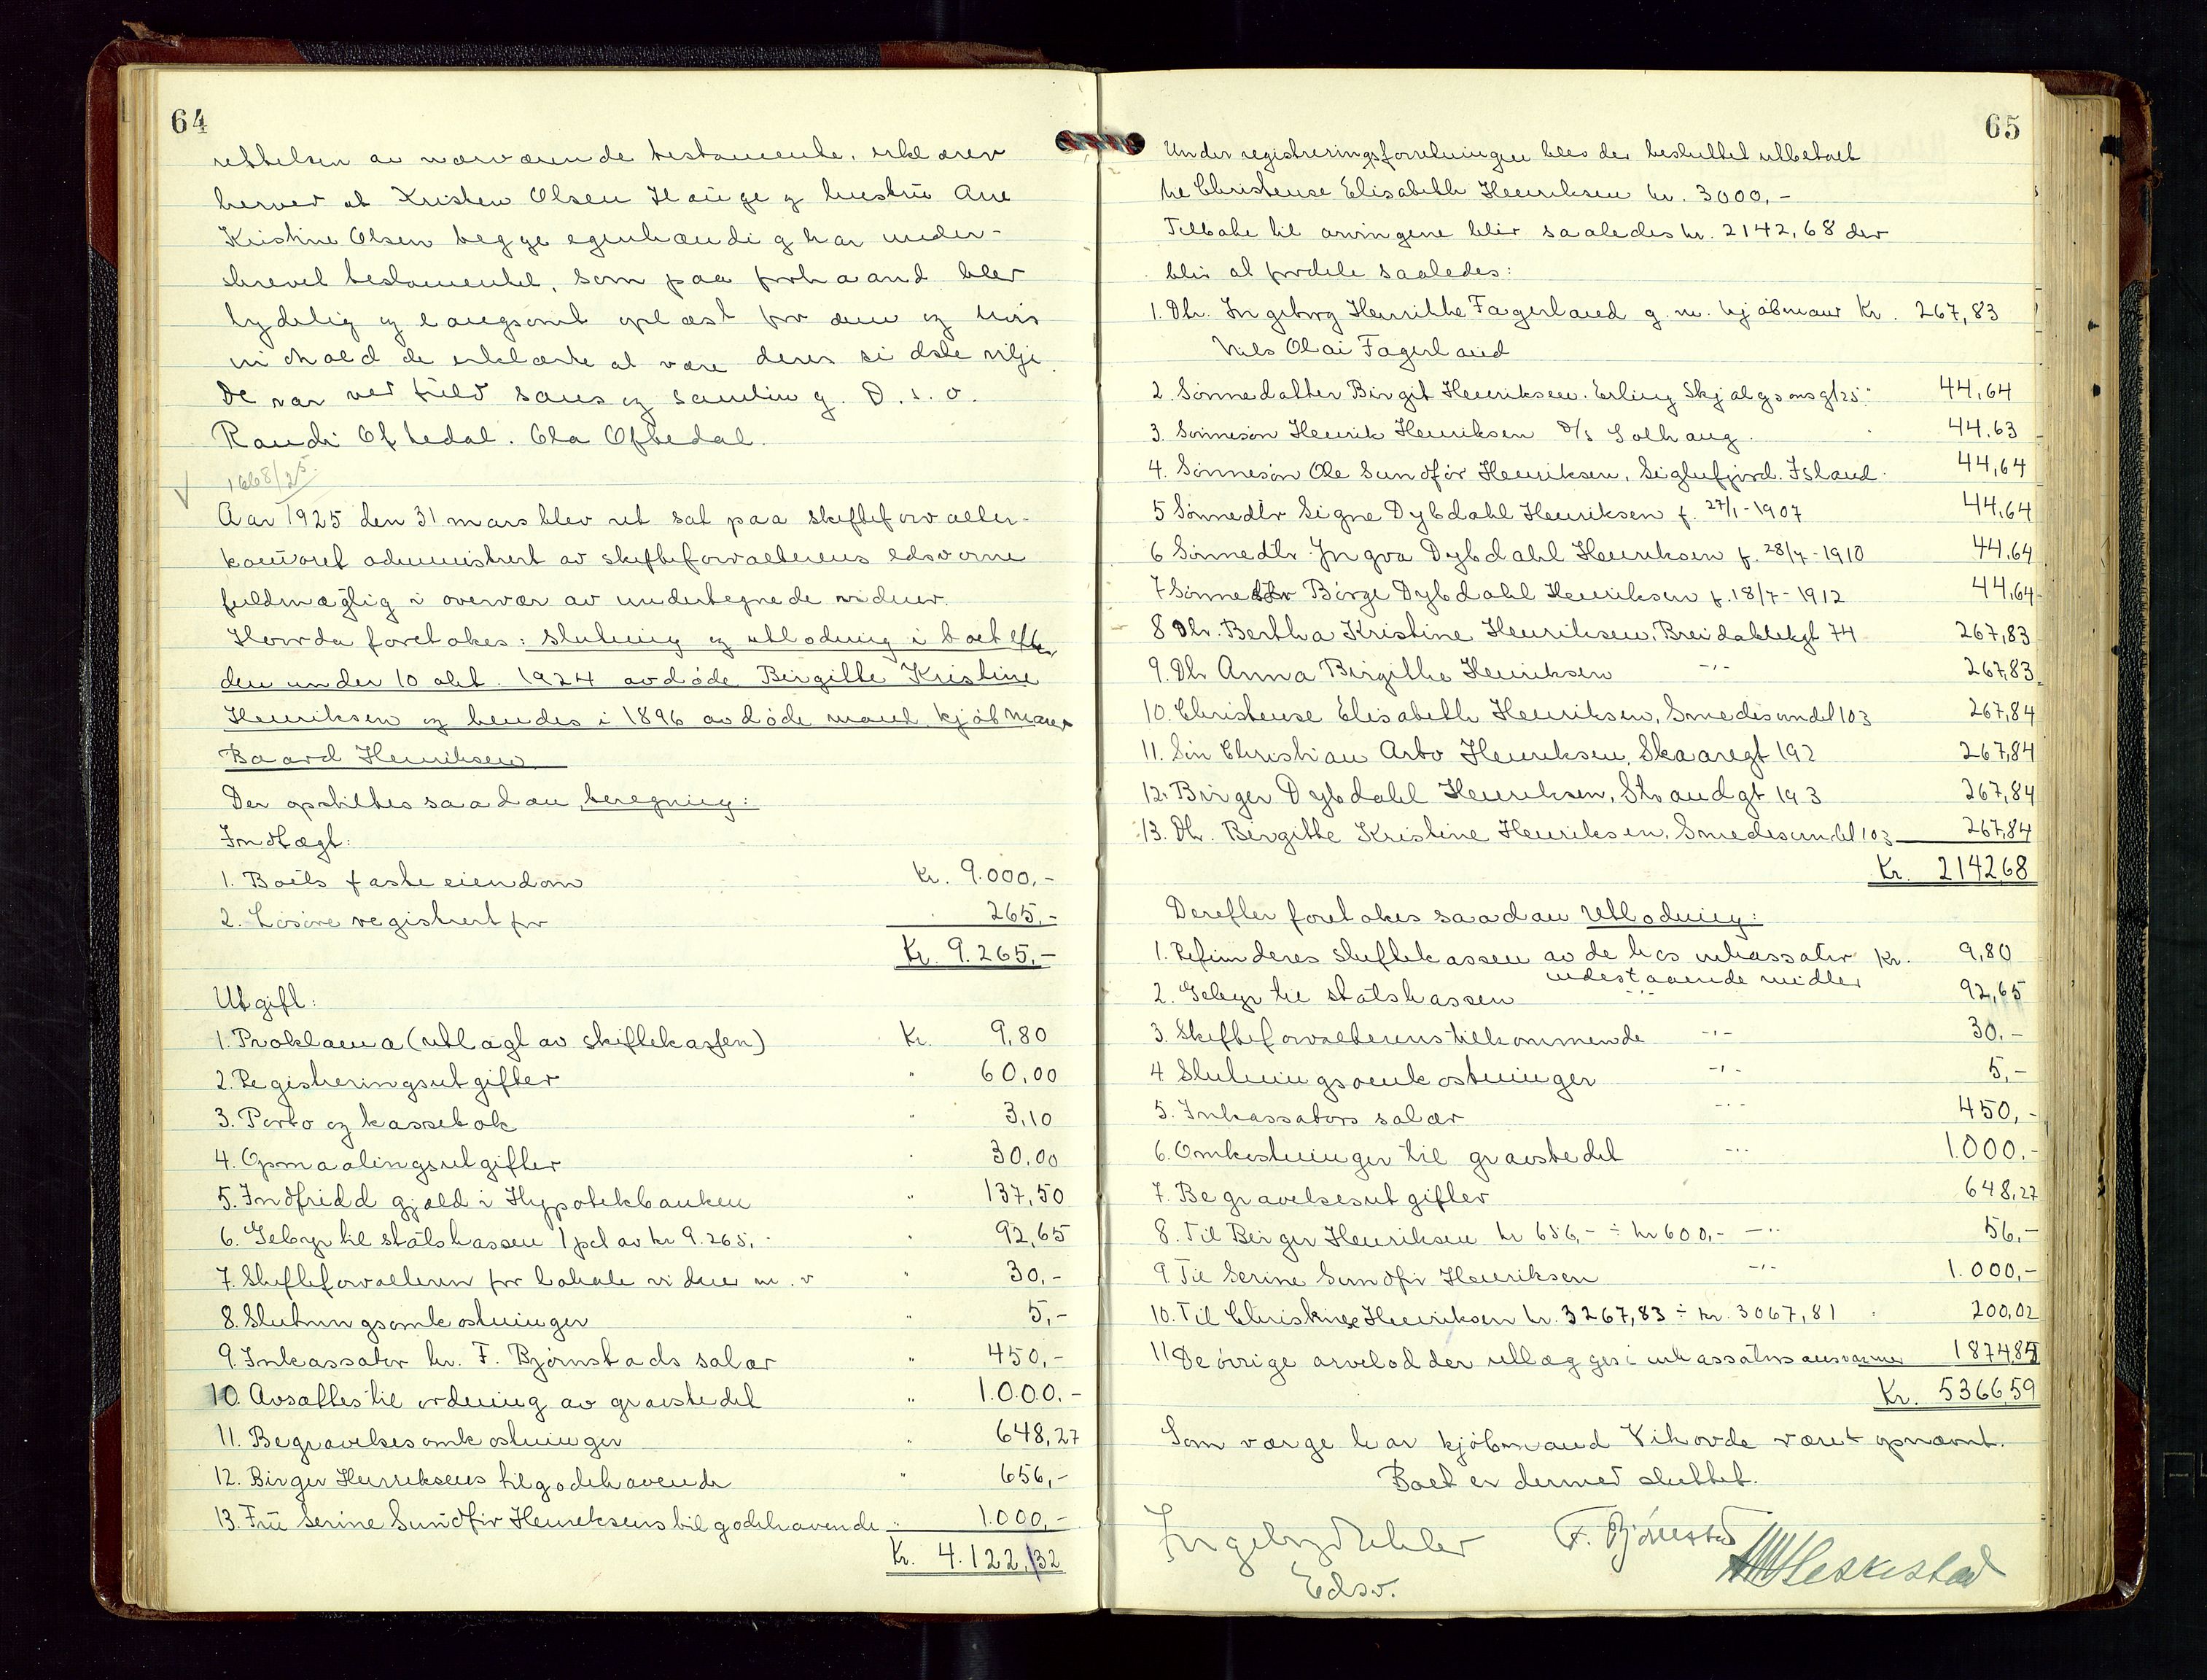 64
rettelsen av nærværende testamente, erklærer
herved at Kristen Olsen Hauge og hustru Ane
Kristine Olsen begge egenhændig har under-
skrevet testamentet, som paa forhaand blev
tydelig og langsomt oplæst for dem og hvis
indhold de erklærte at være deres sidste vilje.
De var ved fuld sans og samling. D. s. o.
Randi Oftedal. Ola Oftedal.
1668/25.
Aar 1925 den 31 mars blev ret sat paa skifteforvalter-
kontoret administrert av skifteforvalterens edsvorne
fuldmægtig i overvær av undertegnede vidner.
Hvorda foretokes: slutning og utlodning i boet efter
den under 10 okt. 1924 avdøde Birgitte Kristine
Henriksen og hendes i 1896 avdøde mand, kjøbmand
Baard Henriksen
Der opstilltes saadan beregning:
Indtægt:
1. Boets faste eiendom Kr. 9.000,-
2. Løsøre registrert for 265,-
Kr. 9.265,-
Utgift:
1. Proklama (utlagt av skiftekassen) Kr. 9,80
2. Registreringsutgifter " 60,00
3. Porto og kassebok " 3,10
4. Opmaalingsutgifter " 30,00
5. Indfridd gjæld i Hypotekbanken " 137,50
6. Gebyr til statskassen 1 pct av kr 9.265,- " 92,65
7. Skifteforvalteren for lokale vidner m. v " 30,-
8. Slutningsomkostninger " 5,-
9. Inkassator hr. F. Bjørnstads salær " 450,-
10. Avsættes til ordning av gravstedet " 1.000,-
11. Begravelsesomkostninger " 648,27
12. Birger Henriksens tilgodehavende " 656,-
13. Fru Serine Sundfør Henriksens tilgodehavende " 1.000,-
Kr. 4.122,32
65
Under registreringsforretningen blev der besluttet utbetalt
til Christense Elisabeth Henriksen kr. 3000,-
Tilbake til arvingene blir saaledes kr. 2142,68 der
blir at fordele saaledes:
1. Dtr. Ingeborg Henritte Fagerland g. m. kjøbmand Kr. 267,83
Nils Olai Fagerland
2. Sønnedatter Birgit Henriksen. Erling Skjalgsonsgt 25 " 44,64
3. Sønnesøn Henrik Henriksen D/S Solhaug. 44,63
4. Sønnesøn Ole Sundfør Henriksen, Siglufjord. Island. 44,64
5 Sønnedtr Signe Dybdahl Henriksen f. 27/1-1907 44,64
6 Sønnedtr. Yngva Dybdahl Henriksen f. 28/7-1910 44,64
7 Sønnedtr Børge Dybdahl Henriksen f. 18/7-1912 44,64
8 Dtr. Bertha Kristine Henriksen, Breidablikgt 74 267,83
9. Dtr Anna Birgithe Henriksen -"- 267,83
10. Christense Elisabeth Henriksen, Smedesundet 103 267,84
11. Søn Christian Arbo Henriksen, Skaaregt 192 267,84
12. Birger Dybdahl Henriksen, Strandgt 193 267,84
13. Dtr. Birgitte Kristine Henriksen, Smedesundet 103 267,84
Kr. 2142,68
Derefter foretokes saadan Utlodning:
1. Refunderes skiftekassen av de hos inkassator Kr. 9,80
indestaaende midler
2. Gebyr til statskassen -"- 92,65
3. Skifteforvalterens tilkommende -"- 30,-
4 Slutningsomkostninger -"- 5,-
5. Inkassators salær -"- 450,-
6. Omkostninger til gravstedet -"- 1.000.-
7. Begravelsesutgifter 648,27
8. Til Birger Henriksen kr 656,- ÷ kr 600,- -"- 56,-
9. Til Serine Sundfør Henriksen -"- 1.000,-
10. Til Christense Henriksen kr. 3267,83 ÷ kr. 3067,81 " 200,02
11 De øvrige arvelodder utlægges i inkassators ansvarssum 1874,85
Kr. 5366,59
Som værge har kjøbmand Vihovde været opnævnt.
Boet er dermed sluttet.
F. Bjørnstad
Edsv.